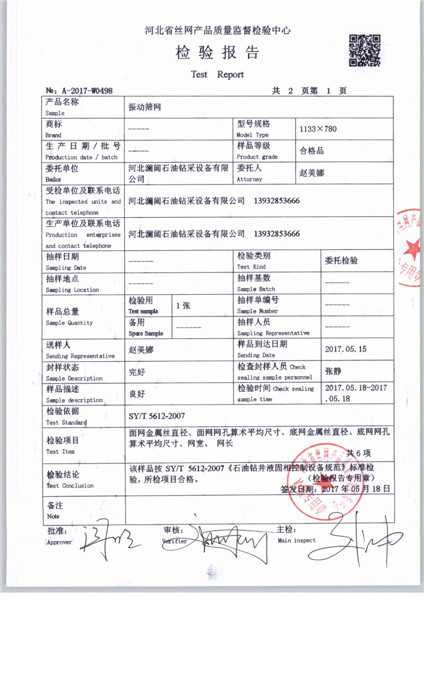 河北省丝网产品质量监督检验中心
检验报告
Test Report
№: A-2017-W0498 共 2 页第 1 页
产品名称 Sample 振动筛网
商标 Brand ------ 型号规格 Model Type 1133×780
生产日期/批号 Production date / batch ------ 样品等级 Product grade 合格品
委托单位 Bailor 河北澜闽石油钻采设备有限公司 委托人 Attorney 赵美娜
受检单位及联系电话 The inspected units and contact telephone 河北澜闽石油钻采设备有限公司 13932853666
生产单位及联系电话 Production enterprises and contact telephone 河北澜闽石油钻采设备有限公司 13932853666
抽样日期 Sampling Date ------ 检验类别 Test Kind 委托检验
抽样地点 Sampling Location ------ 抽样基数 Sample Batch ------
样品总量 Sample Quantity 检验用 Test sample 1 张 抽样单编号 Sample Number ------
备用 Spare Sample ------ 抽样人员 Sampling Representative ------
送样人 Sending Representative 赵美娜 样品到达日期 Sending Date 2017.05.15
封样状态 Sample Description 完好 检查封样人员 Check sealing sample personnel 张静
样品描述 Sample description 良好 检验时间 Check sealing sample time 2017.05.18-2017.05.18
检验依据 Test Standard SY/T 5612-2007
检验项目 Test Item 面网金属丝直径、面网网孔算术平均尺寸、底网金属丝直径、底网网孔
算术平均尺寸、网宽、 网长
共 6 项
检验结论 Test Conclusion 该样品按 SY/T 5612-2007《石油钻井液固相控制设备规范》标准检
验，所检项目合格。 (检验报告专用章)
签发日期: 2017 年 05 月 18 日
备注 Note
批准: Approver 审核: Verifier 主检: Main inspect